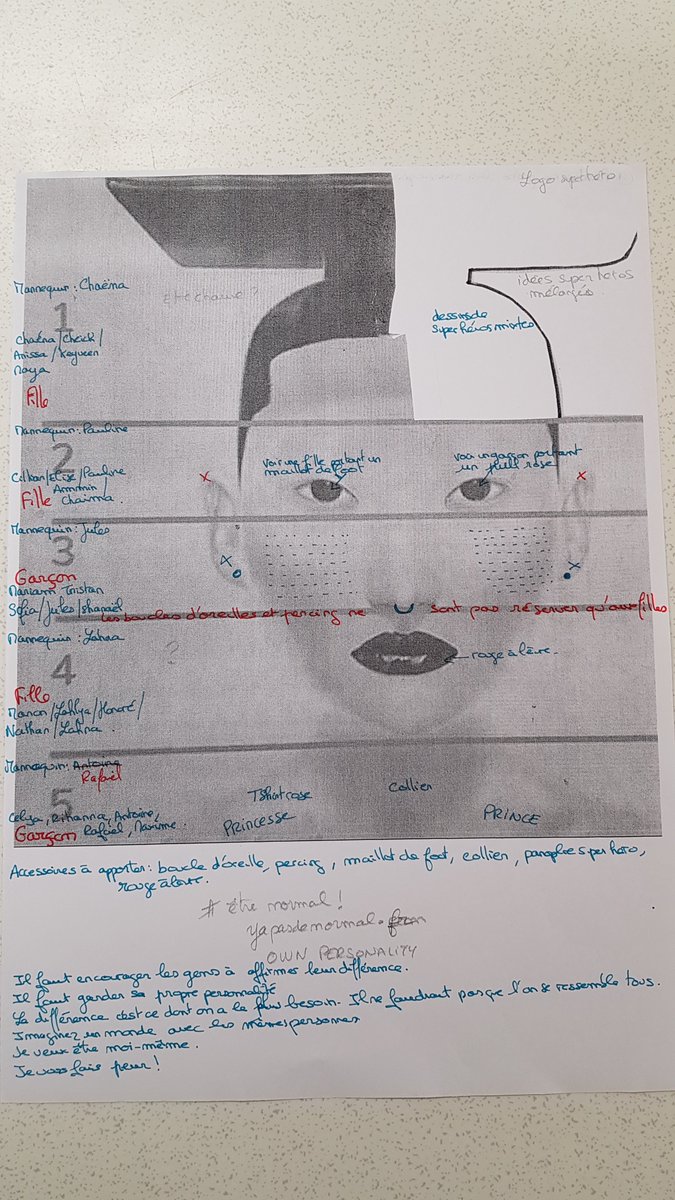 Logo superhéro
Mannequin : Chaëna
Etre chauve ?
idées superhéros
mélangés
1
dessins de
Superhéros mixtes
Chaëna/Cheick/
Anissa/Kayveen
Naya
Fille
Mannequin : Pauline
2
voir une fille portant un
maillot de foot
voir un garçon portant
un pull rose
X
X
Cilhan/Elise/Pauline
Fille
Chaïma.
Mannequin : Jules
3
Garçon
X
X
Mariam Tristan
Sofia/Jules/
Les boucles d'oreilles et percing ne sont pas réserver qu'aux filles
Mannequin : Lahna
?
4
rouge à lèvre.
Fille
Manon/Lehlya/Honoré/
Nathan/Lahna.
Mannequin : Antoine
Rafaël
5
Tshirt rose
Collier
Celya, Rihanna, Antoine,
Garçon Rafaël, Maxime.
PRINCESSE
PRINCE
Accessoires à apporter : boucle d'oreille, percing, maillot de foot, collier, panoplie super héro,
rouge à lèvre.
# être normal !
yapasdenormal.
OWN PERSONALITY
Il faut encourager les gens à affirmer leur différence.
Il faut garder sa propre personnalité
La différence c'est ce dont on a le plus besoin. Il ne faudrait pas que l'on se ressemble tous.
Imaginez un monde avec les mêmes personnes
Je veux être moi-même.
Je vous fais peur !